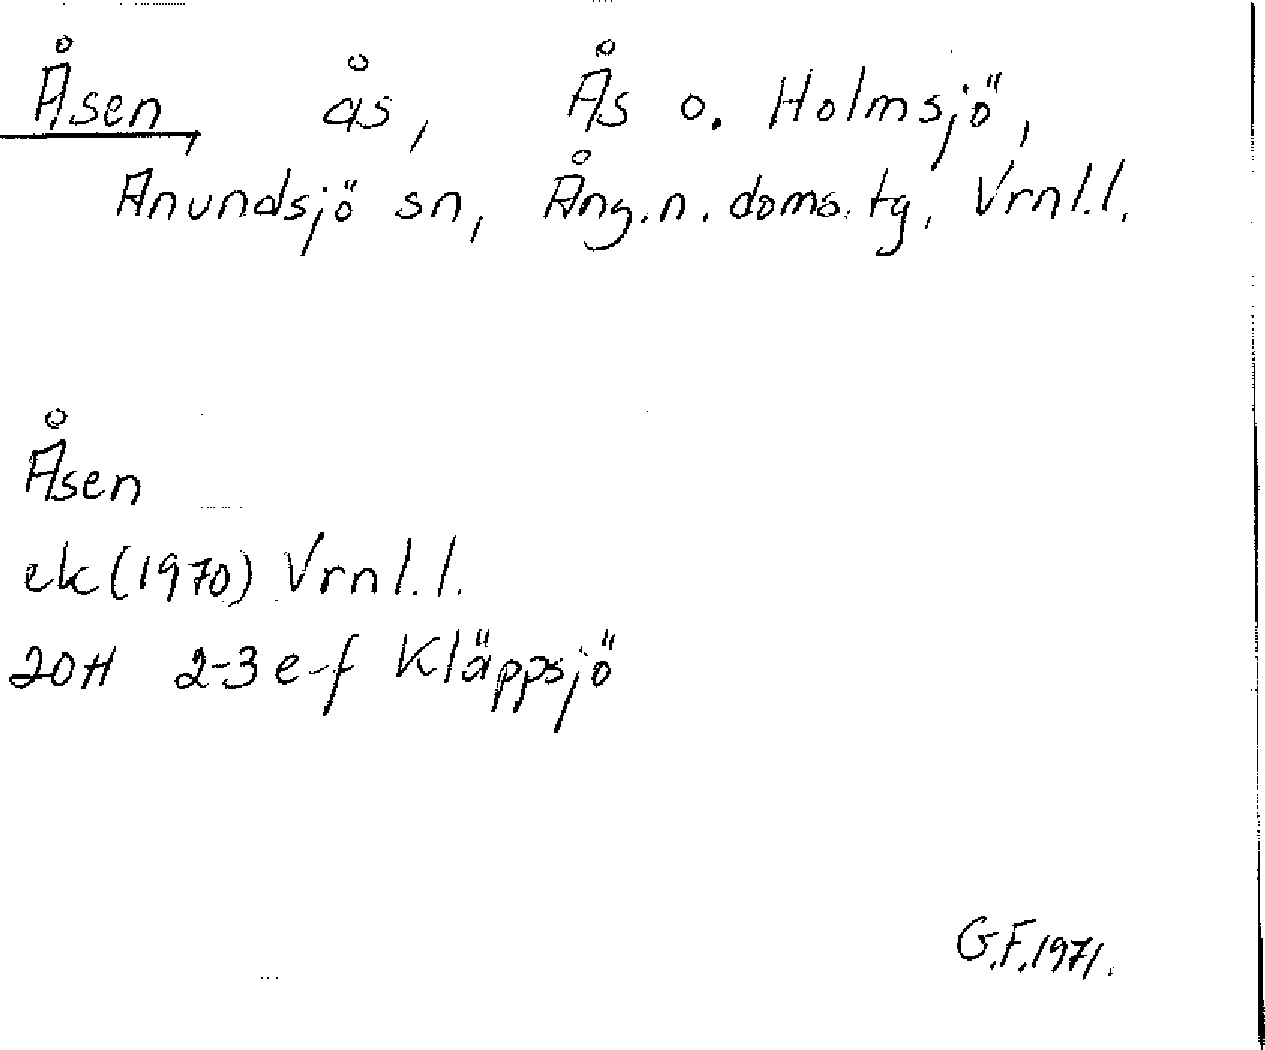 Åsen, ås, Ås o. Holmsjö,
Anundsjö sn, Ång.n. doms.tg, Vrnl.l.
Åsen
ek(1970) Vrnl.l.
20H 2-3 e-f Kläppsjö
G.F.1971.